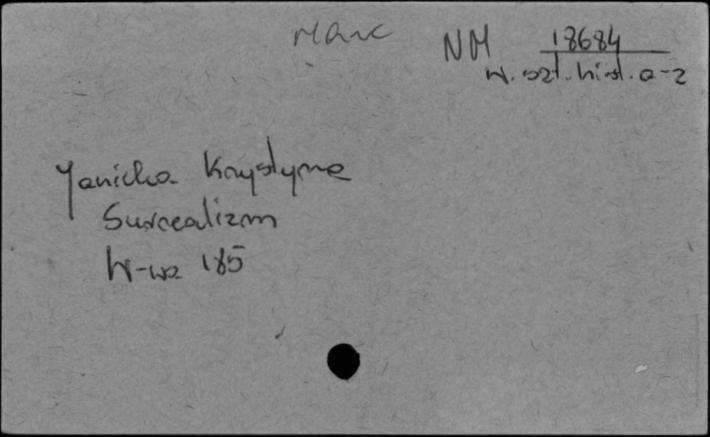 Marc
NM 18684
W. szt. hist. a-z
Janicka Krystyna
Surrealizm
W-wa 185